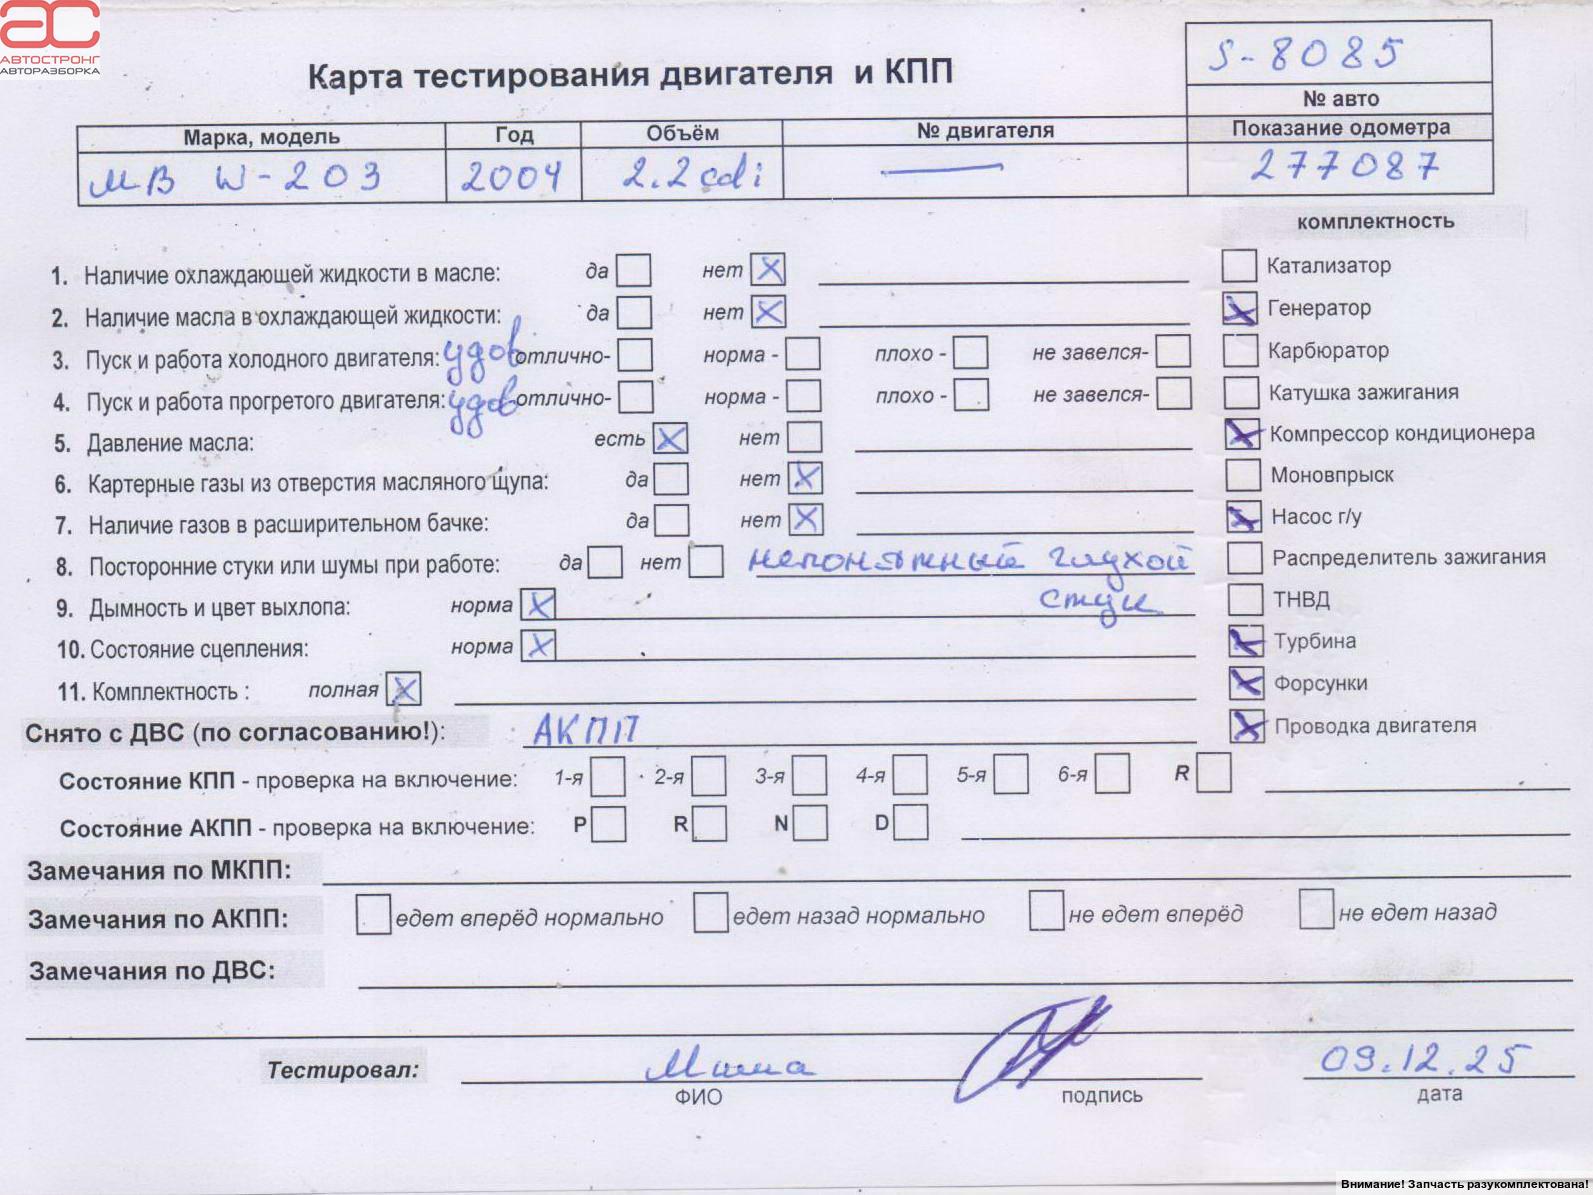 АВТОСТРОНГ
АВТОРАЗБОРКА
Карта тестирования двигателя и КПП
S-8085
№ авто
Марка, модель Год Объём № двигателя Показание одометра
МВ W-203 2004 2.2 cdi — 277087
комплектность
1. Наличие охлаждающей жидкости в масле: да нет X
Катализатор
2. Наличие масла в охлаждающей жидкости: да нет X
Генератор X
3. Пуск и работа холодного двигателя: удов отлично- норма - плохо - не завелся-
Карбюратор
4. Пуск и работа прогретого двигателя: удов отлично- норма - плохо - не завелся-
Катушка зажигания
5. Давление масла: есть X нет
Компрессор кондиционера X
6. Картерные газы из отверстия масляного щупа: да нет X
Моновпрыск
7. Наличие газов в расширительном бачке: да нет X
Насос г/у X
8. Посторонние стуки или шумы при работе: да нет непонятный глухой
Распределитель зажигания
9. Дымность и цвет выхлопа: норма X стук
ТНВД
10. Состояние сцепления: норма X
Турбина X
11. Комплектность : полная X
Форсунки X
Снято с ДВС (по согласованию!): АКПП
Проводка двигателя X
Состояние КПП - проверка на включение: 1-я 2-я 3-я 4-я 5-я 6-я R
Состояние АКПП - проверка на включение: P R N D
Замечания по МКПП:
Замечания по АКПП: едет вперёд нормально едет назад нормально не едет вперёд не едет назад
Замечания по ДВС:
Тестировал: Миша 09.12.25
ФИО подпись дата
Внимание! Запчасть разукомплектована!